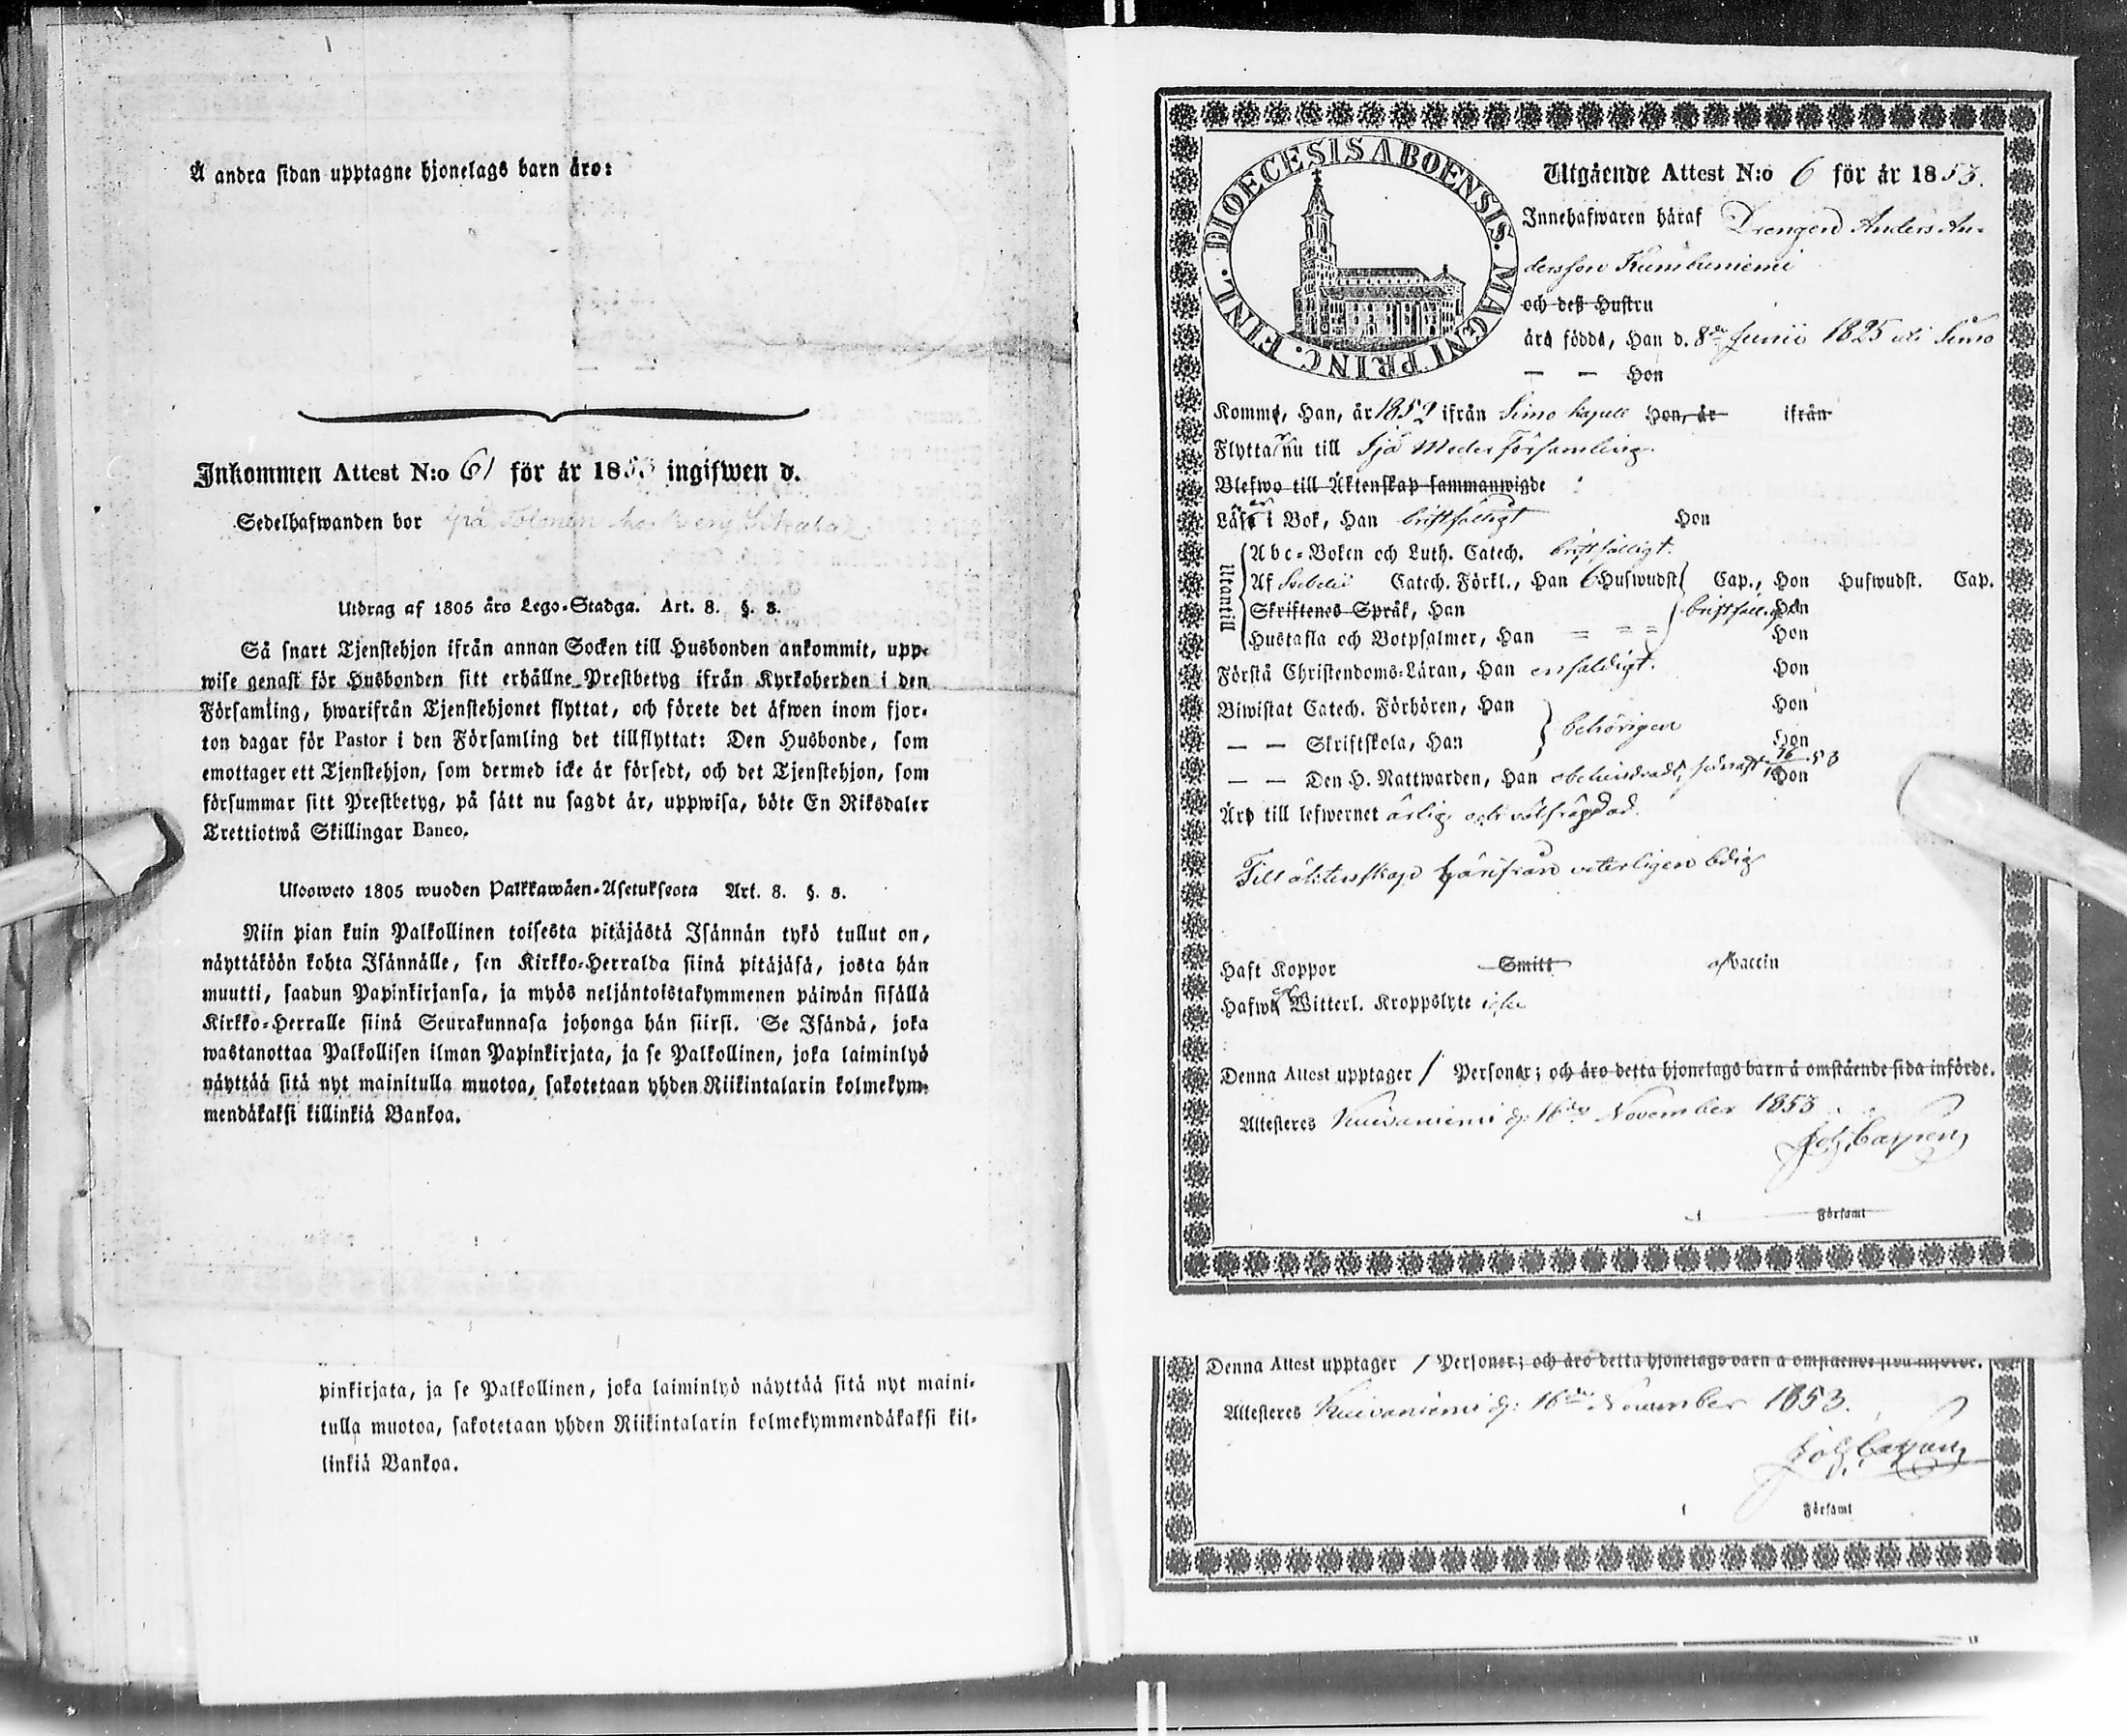 Å andra sidan upptagne hjonelags barn äro:
Inkommen Attest N:o 61 för år 1853 ingifwen d.
Sedelhafwanden bor på Tolonen
Utdrag af 1805 års Lego-Stadga. Art. 8. §. 8.
Så snart Tjenstehjon ifrån annan Socken till Husbonden ankommit, upp-
wise genast för Husbonden sitt erhållne Prestbetyg ifrån Kyrkoherden i den
Församling, hwarifrån Tjenstehjonet flyttat, och förete det äfwen inom fjor-
ton dagar för Pastor i den Församling det tillflyttat: Den Husbonde, som
emottager ett Tjenstehjon, som dermed icke är försedt, och det Tjenstehjon, som
försummar sitt Prestbetyg, på sätt nu sagdt är, uppwisa, böte En Riksdaler
Trettiotwå Skillingar Banco.
Ulosweto 1805 wuoden Palkkawäen-Asetuksesta Art. 8. §. 8.
Niin pian kuin Palkollinen toisesta pitäjästä Isännän tykö tullut on,
näyttäköön kohta Isännälle, sen Kirkko-Herralda siinä pitäjäsä, josta hän
muutti, saadun Papinkirjansa, ja myös neljäntoistakymmenen päiwän sisällä
Kirkko-Herralle siinä Seurakunnasa johonga hän siirsi. Se Isändä, joka
wastanottaa Palkollisen ilman Papinkirjata, ja se Palkollinen, joka laiminlyö
näyttää sitä nyt mainitulla muotoa, sakotetaan yhden Riikintalarin kolmekym-
mendäkaksi killinkiä Bankoa.
pinkirjata, ja se Palkollinen, joka laiminlyö näyttää sitä nyt maini-
tulla muotoa, sakotetaan yhden Riikintalarin kolmekymmendäkaksi kil-
linkiä Bankoa.
DIOECESIS ABOENSIS. MAGNI PRINC. FINL.
Utgående Attest N:o 6 för år 1853.
Innehafwaren häraf Drengen Anders An-
dersson Kumbuniemi
och deß Hustru
äro födde, Han d. 8de Junii 1825 uti Simo
— — Hon
Komme, Han, år 1852 ifrån Simo kapell Hon, år ifrån
Flyttar nu till Ijå Moderförsamling.
Blefwo till Äktenskap sammanwigde
Läser i Bok, Han bristfälligt Hon
Utantill
Abc-Boken och Luth. Catech. bristfälligt.
Af Svebelii Catech. Förkl., Han 6 Hufwudst Cap., Hon Hufwudst. Cap.
Skriftenes Språk, Han bristfälligt Hon
Hustafla och Botpsalmer, Han = = = Hon
Förstå Christendoms-Läran, Han enfaldigt. Hon
Biwistat Catech. Förhören, Han behörigen Hon
— — Skriftskola, Han Hon
— — Den H. Nattwarden, Han obehindradt, senast 53 Hon
Äro till lefwernet ärlig och välfrägdad.
Till äktenskap härifrån veterligen ledig
Haft Koppor Smitt af vaccin
Hafwa Witterl. Kroppslyte icke
Denna Attest upptager 1 Personer; och äro detta hjonelags barn å omstående sida införde.
Attesteres Kuivaniemi d: 16de November 1853
Joh. Carpen
i Församl
Denna Attest upptager 1 Personer; och äro detta hjonelags barn å omstående sida införde.
Attesteres Kuivaniemi d: 16de November 1853.
Joh. Carpen
i Församl